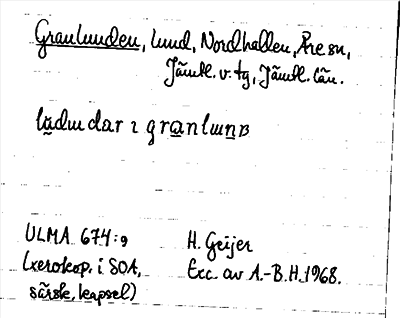 Granlunden, lund, Nordhallen, Åre sn,
Jämtl. v. tg, Jämtl. län.
ULMA 674:9
(xerokop. i SOA,
särsk. kapsel)
H. Geijer
Exc. av A.-B.H. 1968.